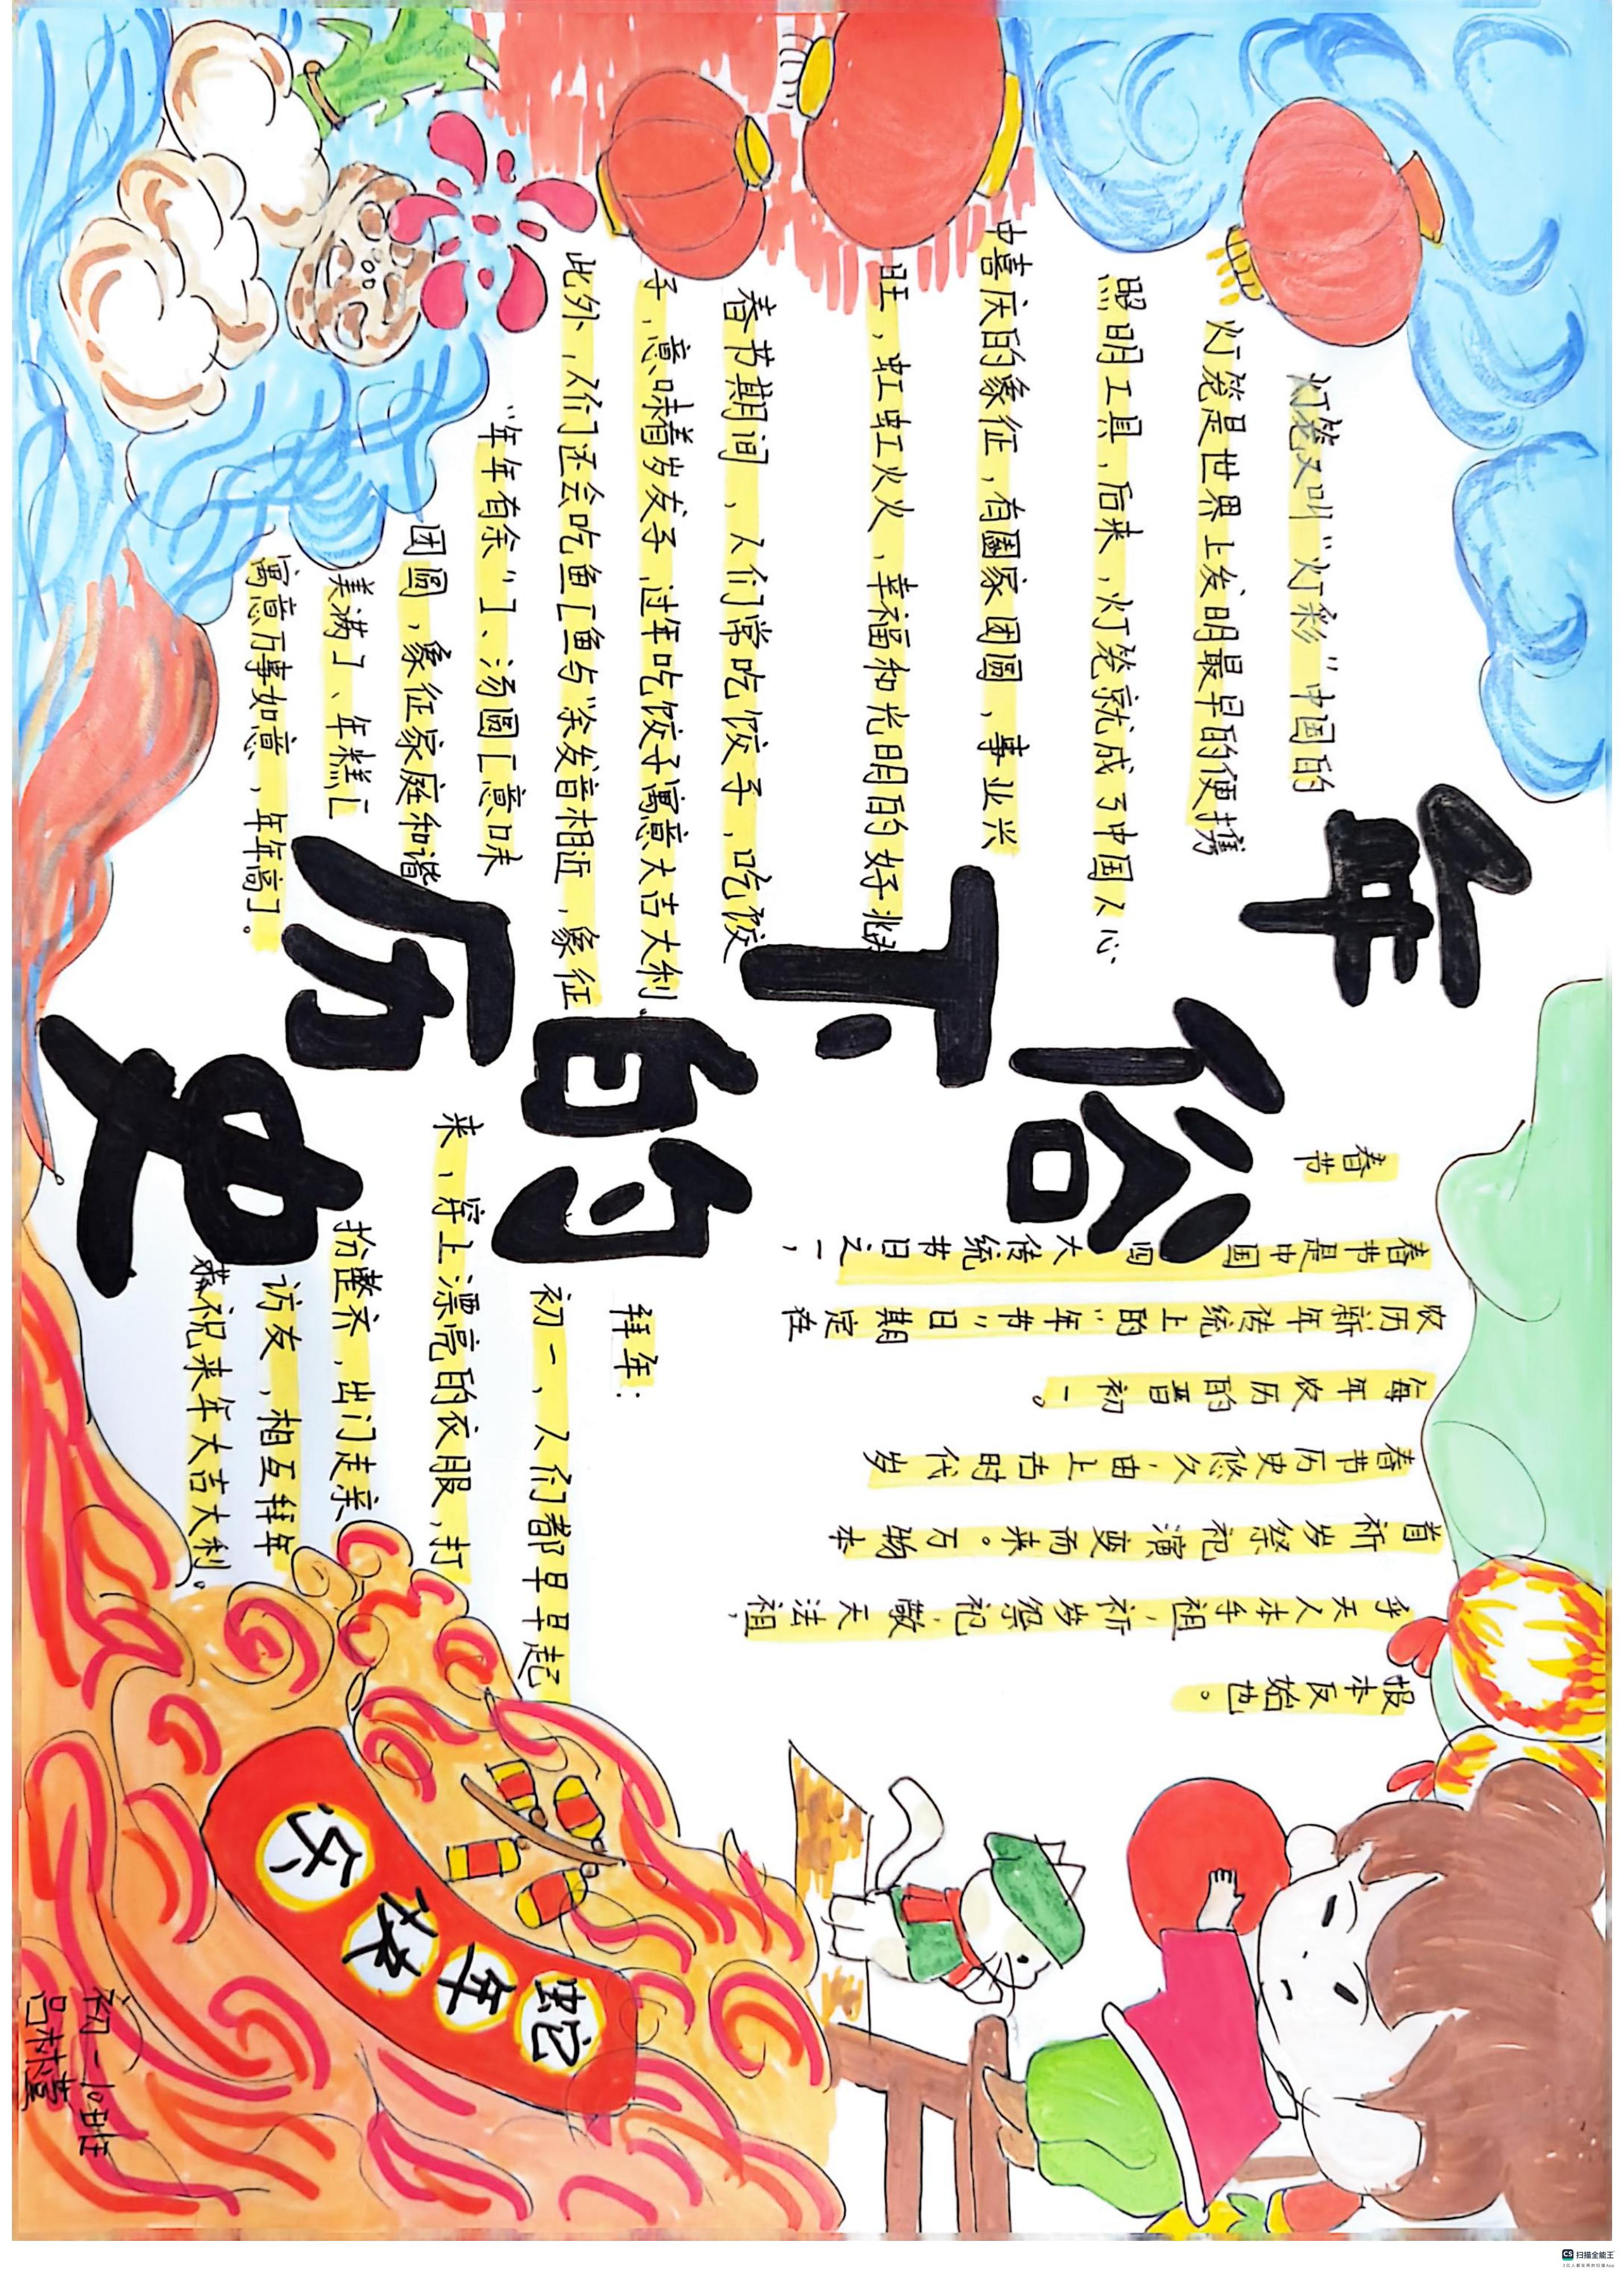 年俗下的历史
灯笼又叫“灯彩”中国的
灯笼是世界上发明最早的便携
照明工具，后来，灯笼就成了中国人心
中喜庆的象征，有圖家团圆，事业兴
旺，虹虹火火，幸福和光明的好兆
春节期间，人们常吃饺子，吃饺
子，意味着岁友子，过年吃饺子寓意大吉大利。
此外，人们还会吃鱼[鱼与余发音相近，象征
“年年有余”]、汤圆[意味
团圆，象征家庭和谐
美满]、年糕[
寓意万事如意，年年高]。
春节
春节是中国四大传统节日之一，
农历新年传统上的“年节”日期定在
每年农历的晋初一。
春节历史悠久，由上古时代岁
首祈岁祭祀演变而来。万物本
乎天人本乎祖，祈岁祭祀，敬天法祖，
报本反始也。
拜年：
初一，人们都早早起
来，穿上漂亮的衣服，打
扮整齐，出门走亲
访友，相互拜年
恭祝来年大吉大利。
蛇年快乐
初一10班
扫描全能王